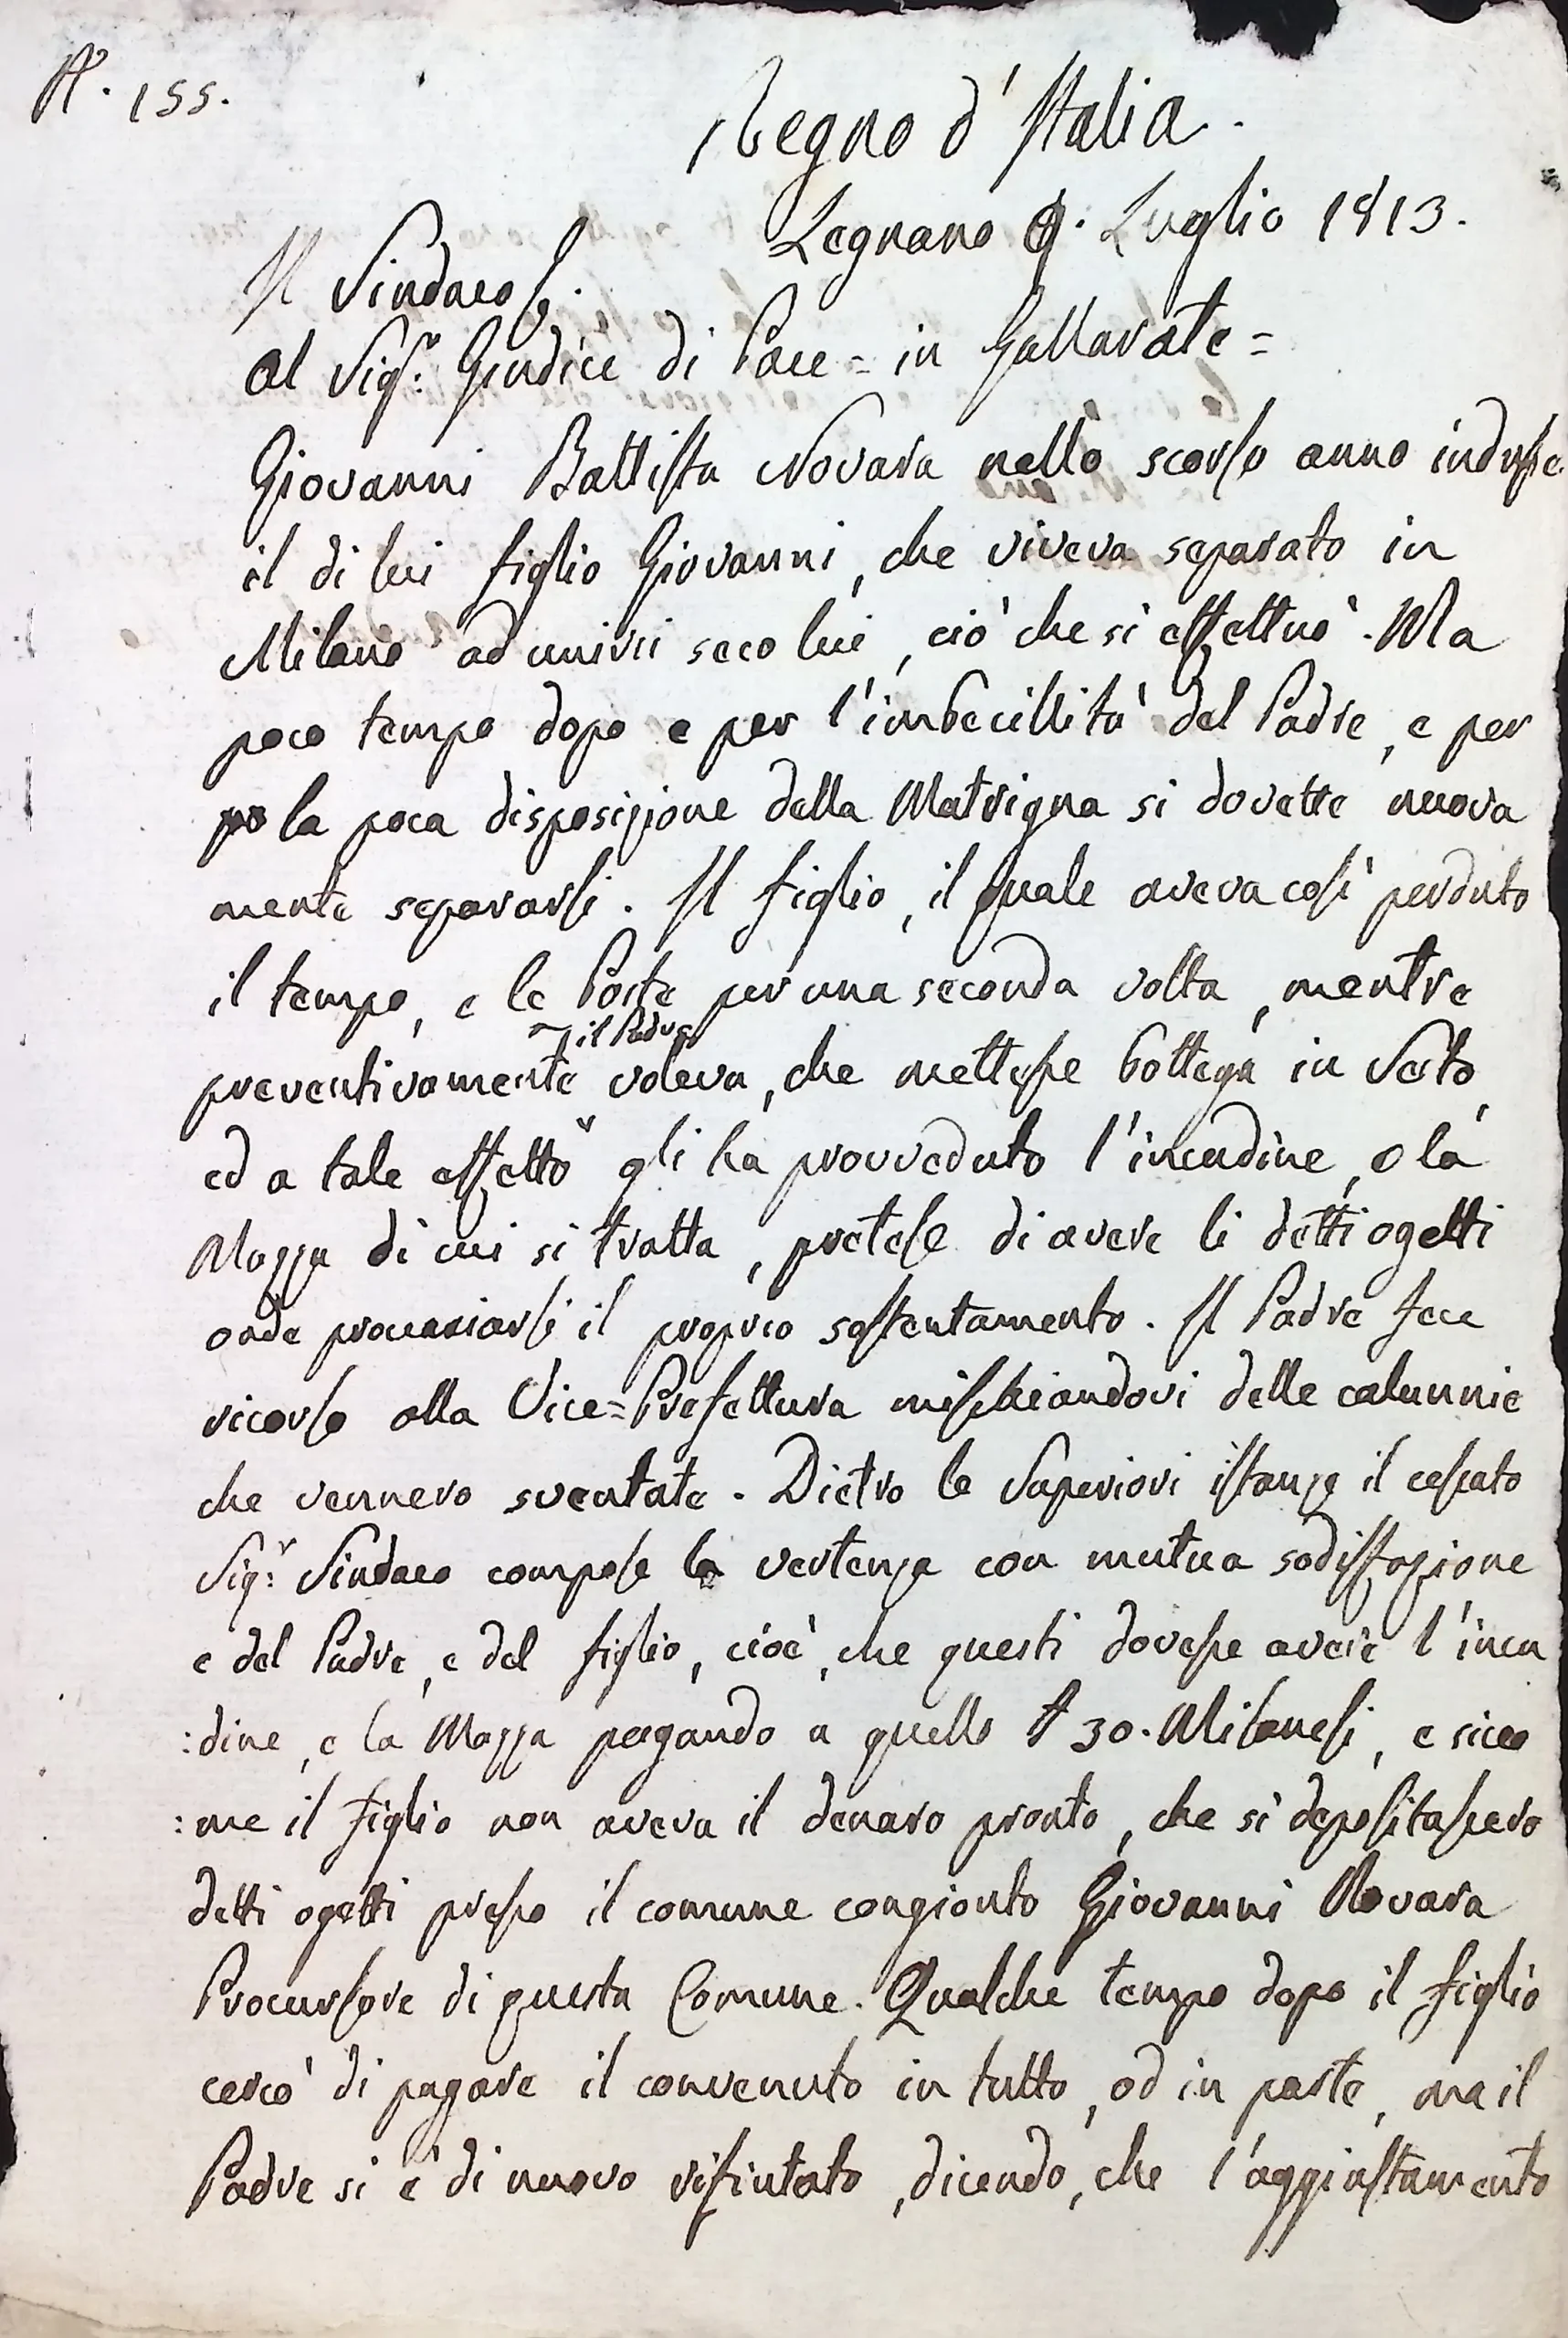 N°. 155.
Regno d'Italia.
Legnano 9. Luglio 1813.
Il Sindaco f.
al Sigr: Giudice di Pace = in Gallarate =
Giovanni Battista Novara nello scorso anno indusse
il di lui figlio Giovanni, che viveva separato in
Milano ad unirsi seco lui, ciò che si effettuò. Ma
poco tempo dopo e per l'imbecillità del Padre, e per
la poca disposizione della Matrigna si dovette nuova
mente separarsi. Il figlio, il quale aveva così perduto
il tempo, e le Poste per una seconda volta, mentre
il Padre
preventivamente voleva, che mettesse bottega in Sesto,
ed a tale effetto gli ha provveduto l'incudine, e la
Mazza di cui si tratta, pretese di avere li detti ogetti
onde procacciarsi il proprio sostentamento. Il Padre fece
ricorso alla Vice=Prefettura mischiandovi delle calunnie
che vennero sventate. Dietro le Superiori istanze il cessato
Sigr: Sindaco compose la vertenza con mutua sodisfazione
e del Padre, e del figlio, cioè, che questi dovesse avere l'incu
:dine, e la Mazza pagando a quello £ 30. Milanesi, e sicco
:me il figlio non aveva il denaro pronto, che si depositassero
detti ogetti presso il comune congionto Giovanni Novara
Procursore di questa Comune. Qualche tempo dopo il figlio
cercò di pagare il convenuto in tutto, od in parte, ma il
Padre si è di nuovo rifiutato, dicendo, che l'aggiustamento